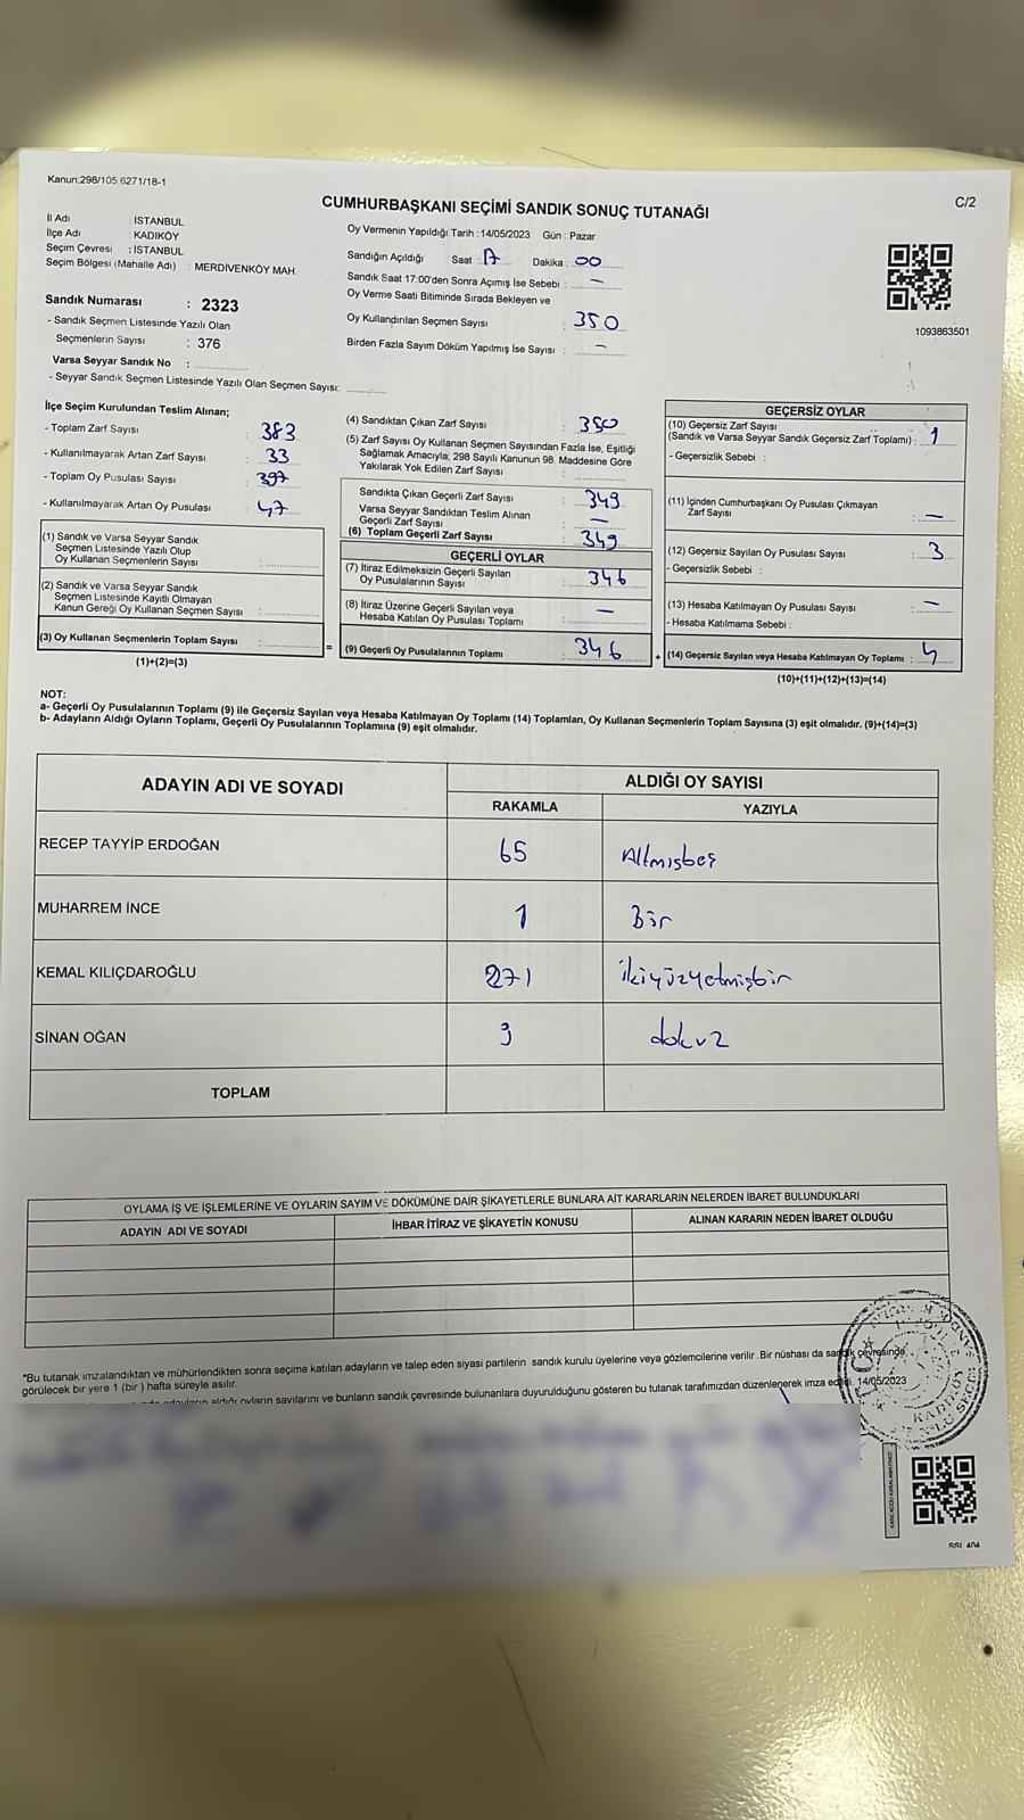 Kanun:298/105.6271/18-1
C/2
CUMHURBAŞKANI SEÇİMİ SANDIK SONUÇ TUTANAĞI
İl Adı İSTANBUL
İlçe Adı KADIKÖY
Seçim Çevresi : İSTANBUL
Seçim Bölgesi (Mahalle Adı) MERDİVENKÖY MAH.
Oy Vermenin Yapıldığı Tarih : 14/05/2023 Gün : Pazar
Sandığın Açıldığı Saat 17 Dakika : 00
Sandık Saat 17:00'den Sonra Açımış İse Sebebi : —
Oy Verme Saati Bitiminde Sırada Bekleyen ve
Oy Kullandırılan Seçmen Sayısı : 350
Birden Fazla Sayım Döküm Yapılmış İse Sayısı : —
1093863501
Sandık Numarası : 2323
- Sandık Seçmen Listesinde Yazılı Olan
Seçmenlerin Sayısı : 376
Varsa Seyyar Sandık No :
- Seyyar Sandık Seçmen Listesinde Yazılı Olan Seçmen Sayısı:
İlçe Seçim Kurulundan Teslim Alınan;
- Toplam Zarf Sayısı : 383
- Kullanılmayarak Artan Zarf Sayısı : 33
- Toplam Oy Pusulası Sayısı : 397
- Kullanılmayarak Artan Oy Pusulası : 47
(1) Sandık ve Varsa Seyyar Sandık
Seçmen Listesinde Yazılı Olup
Oy Kullanan Seçmenlerin Sayısı :
(2) Sandık ve Varsa Seyyar Sandık
Seçmen Listesinde Kayıtlı Olmayan
Kanun Gereği Oy Kullanan Seçmen Sayısı :
(3) Oy Kullanan Seçmenlerin Toplam Sayısı :
(1)+(2)=(3)
(4) Sandıktan Çıkan Zarf Sayısı : 350
(5) Zarf Sayısı Oy Kullanan Seçmen Sayısından Fazla İse, Eşitliği
Sağlamak Amacıyla; 298 Sayılı Kanunun 98. Maddesine Göre
Yakılarak Yok Edilen Zarf Sayısı :
Sandıkta Çıkan Geçerli Zarf Sayısı : 349
Varsa Seyyar Sandıktan Teslim Alınan
Geçerli Zarf Sayısı : —
(6) Toplam Geçerli Zarf Sayısı : 349
GEÇERLİ OYLAR
(7) İtiraz Edilmeksizin Geçerli Sayılan
Oy Pusulalarının Sayısı : 346
(8) İtiraz Üzerine Geçerli Sayılan veya
Hesaba Katılan Oy Pusulası Toplamı : —
= (9) Geçerli Oy Pusulalarının Toplamı : 346
GEÇERSİZ OYLAR
(10) Geçersiz Zarf Sayısı
(Sandık ve Varsa Seyyar Sandık Geçersiz Zarf Toplamı) : 1
- Geçersizlik Sebebi :
(11) İçinden Cumhurbaşkanı Oy Pusulası Çıkmayan
Zarf Sayısı : —
(12) Geçersiz Sayılan Oy Pusulası Sayısı : 3
- Geçersizlik Sebebi :
(13) Hesaba Katılmayan Oy Pusulası Sayısı : —
- Hesaba Katılmama Sebebi :
+ (14) Geçersiz Sayılan veya Hesaba Katılmayan Oy Toplamı : 4
(10)+(11)+(12)+(13)=(14)
NOT:
a- Geçerli Oy Pusulalarının Toplamı (9) ile Geçersiz Sayılan veya Hesaba Katılmayan Oy Toplamı (14) Toplamları, Oy Kullanan Seçmenlerin Toplam Sayısına (3) eşit olmalıdır. (9)+(14)=(3)
b- Adayların Aldığı Oyların Toplamı, Geçerli Oy Pusulalarının Toplamına (9) eşit olmalıdır.
ADAYIN ADI VE SOYADI ALDIĞI OY SAYISI
RAKAMLA YAZIYLA
RECEP TAYYİP ERDOĞAN 65 Altmışbeş
MUHARREM İNCE 1 Bir
KEMAL KILIÇDAROĞLU 271 ikiyüzyetmişbir
SİNAN OĞAN 9 dokuz
TOPLAM
OYLAMA İŞ VE İŞLEMLERİNE VE OYLARIN SAYIM VE DÖKÜMÜNE DAİR ŞİKAYETLERLE BUNLARA AİT KARARLARIN NELERDEN İBARET BULUNDUKLARI
ADAYIN ADI VE SOYADI İHBAR İTİRAZ VE ŞİKAYETİN KONUSU ALINAN KARARIN NEDEN İBARET OLDUĞU
*Bu tutanak imzalandıktan ve mühürlendikten sonra seçime katılan adayların ve talep eden siyasi partilerin sandık kurulu üyelerine veya gözlemcilerine verilir. Bir nüshası da sandık çevresinde
görülecek bir yere 1 (bir) hafta süreyle asılır.
aldığı oyların sayılarını ve bunların sandık çevresinde bulunanlara duyurulduğunu gösteren bu tutanak tarafımızdan düzenlenerek imza edildi. 14/05/2023
KADIKÖY